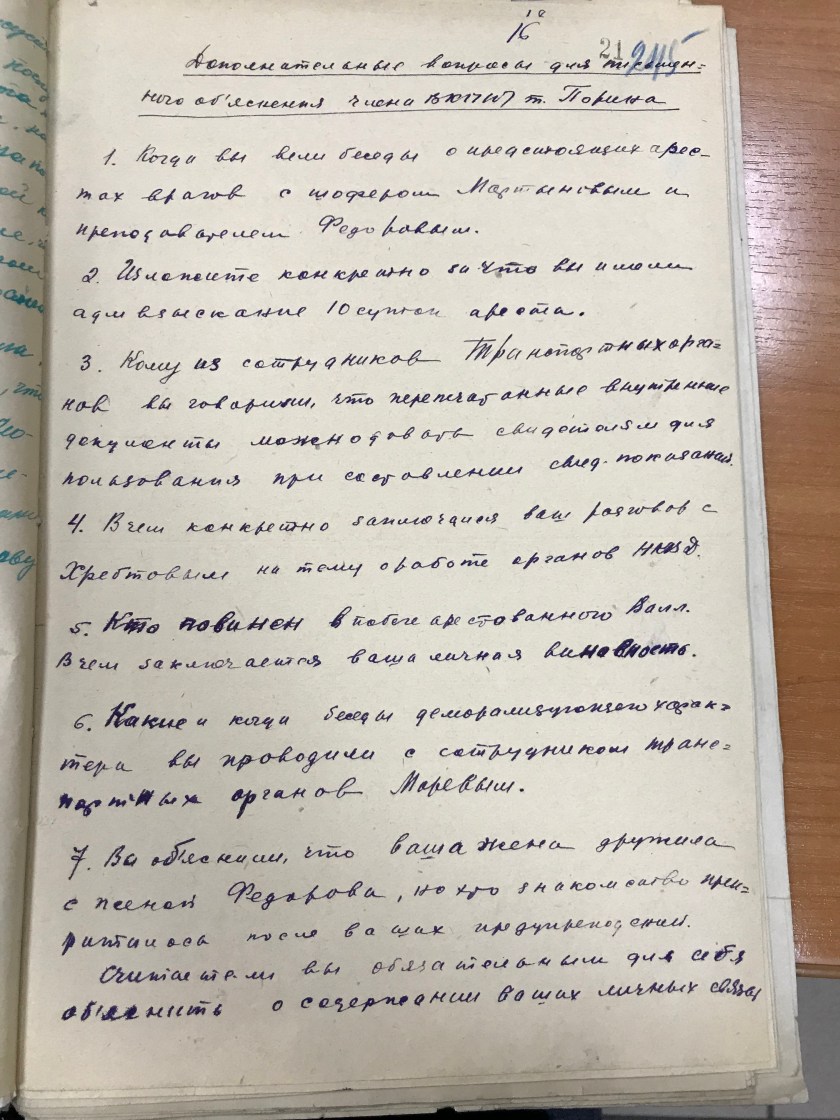 16
21 245
Дополнительные вопросы для письмен=
ного об'яснения члена ВКП(б) т. Порина
1. Когда вы вели беседы о предстоящих арес-
тах врагов с шофером Мартыновым и
преподавателем Федоровым.
2. Изложите конкретно за что вы имели
адм взыскание 10 суток ареста.
3. Кому из сотрудников Транспортных орга=
нов вы говорили, что перепечатанные внутренние
документы можно давать свидетелям для
пользования при составлении свид. показаний.
4. В чем конкретно заключался ваш разговор с
Хребтовым на тему о работе органов НКВД.
5. Кто повинен в побеге арестованного Валл.
В чем заключается ваша личная виновность.
6. Какие и когда беседы деморализующего харак=
тера вы проводили с сотрудником транс=
портных органов Моревым.
7. Вы об'яснили, что ваша жена дружила
с женой Федорова, но это знакомство прек=
ратилось после ваших предупреждений.
Считаете ли вы обязательным для себя
об'яснить о содержании ваших личных связей